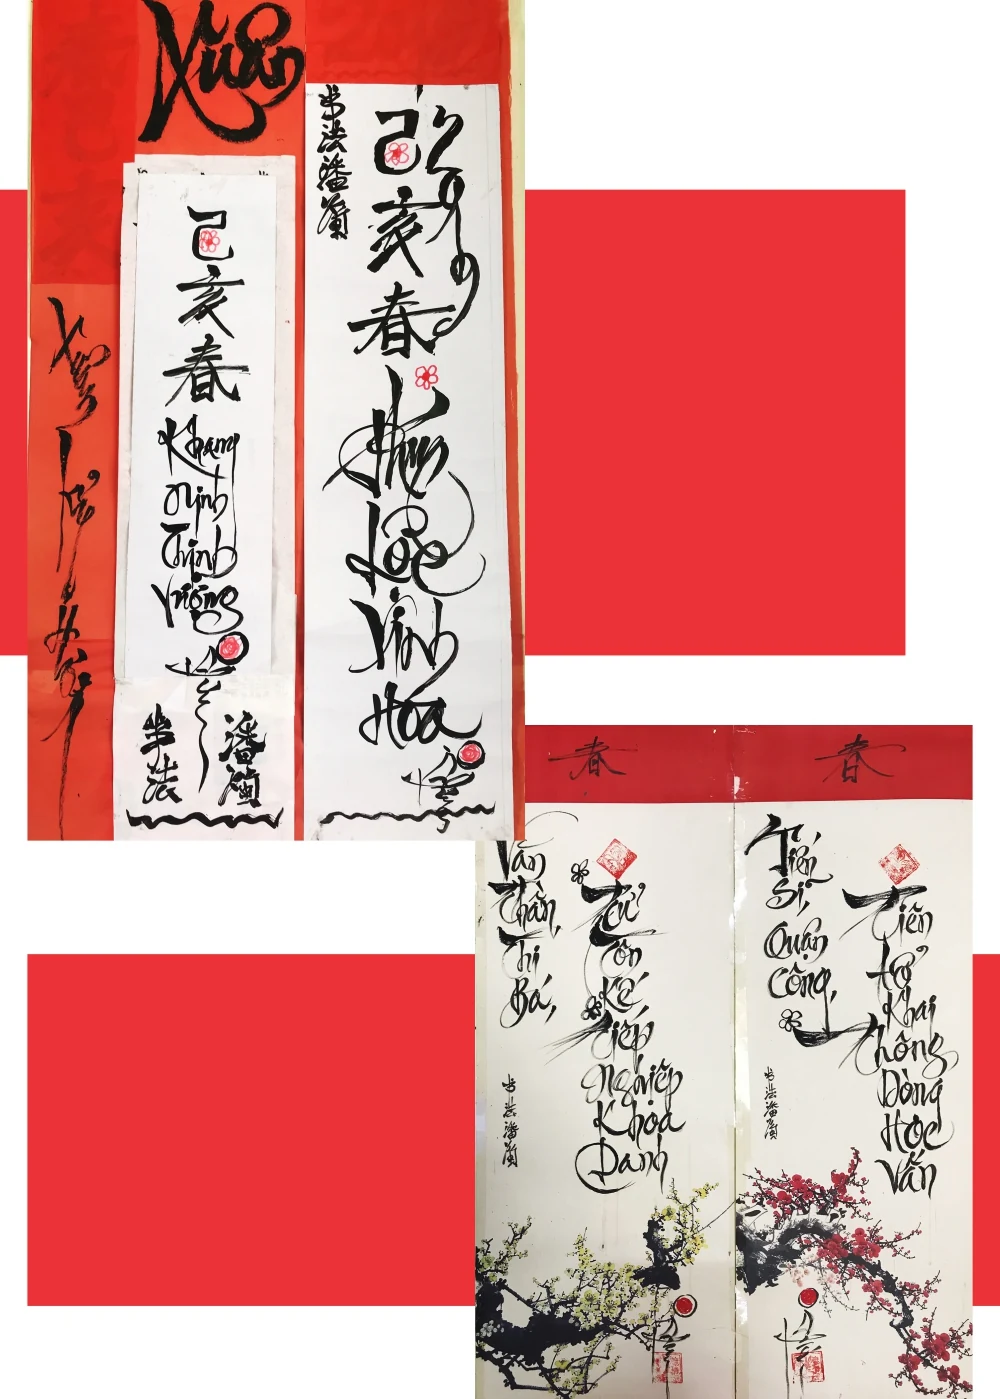 Xuân
己
亥
春
Khang
Ninh
Thịnh
Vượng
书
法
潘
书
法
潘
蘭
己
亥
春
Lộc
Vinh
Hoa
春
春
Văn
Thần,
Thi
Bá,
Tử
Tôn
Kế
Tiếp
Nghiệp
Khoa
Danh
书
法
潘
蘭
Tiến
Sĩ,
Quận
Công,
Tiên
tổ
Khai
Thông
Dòng
Học
Vấn
书
法
潘
蘭